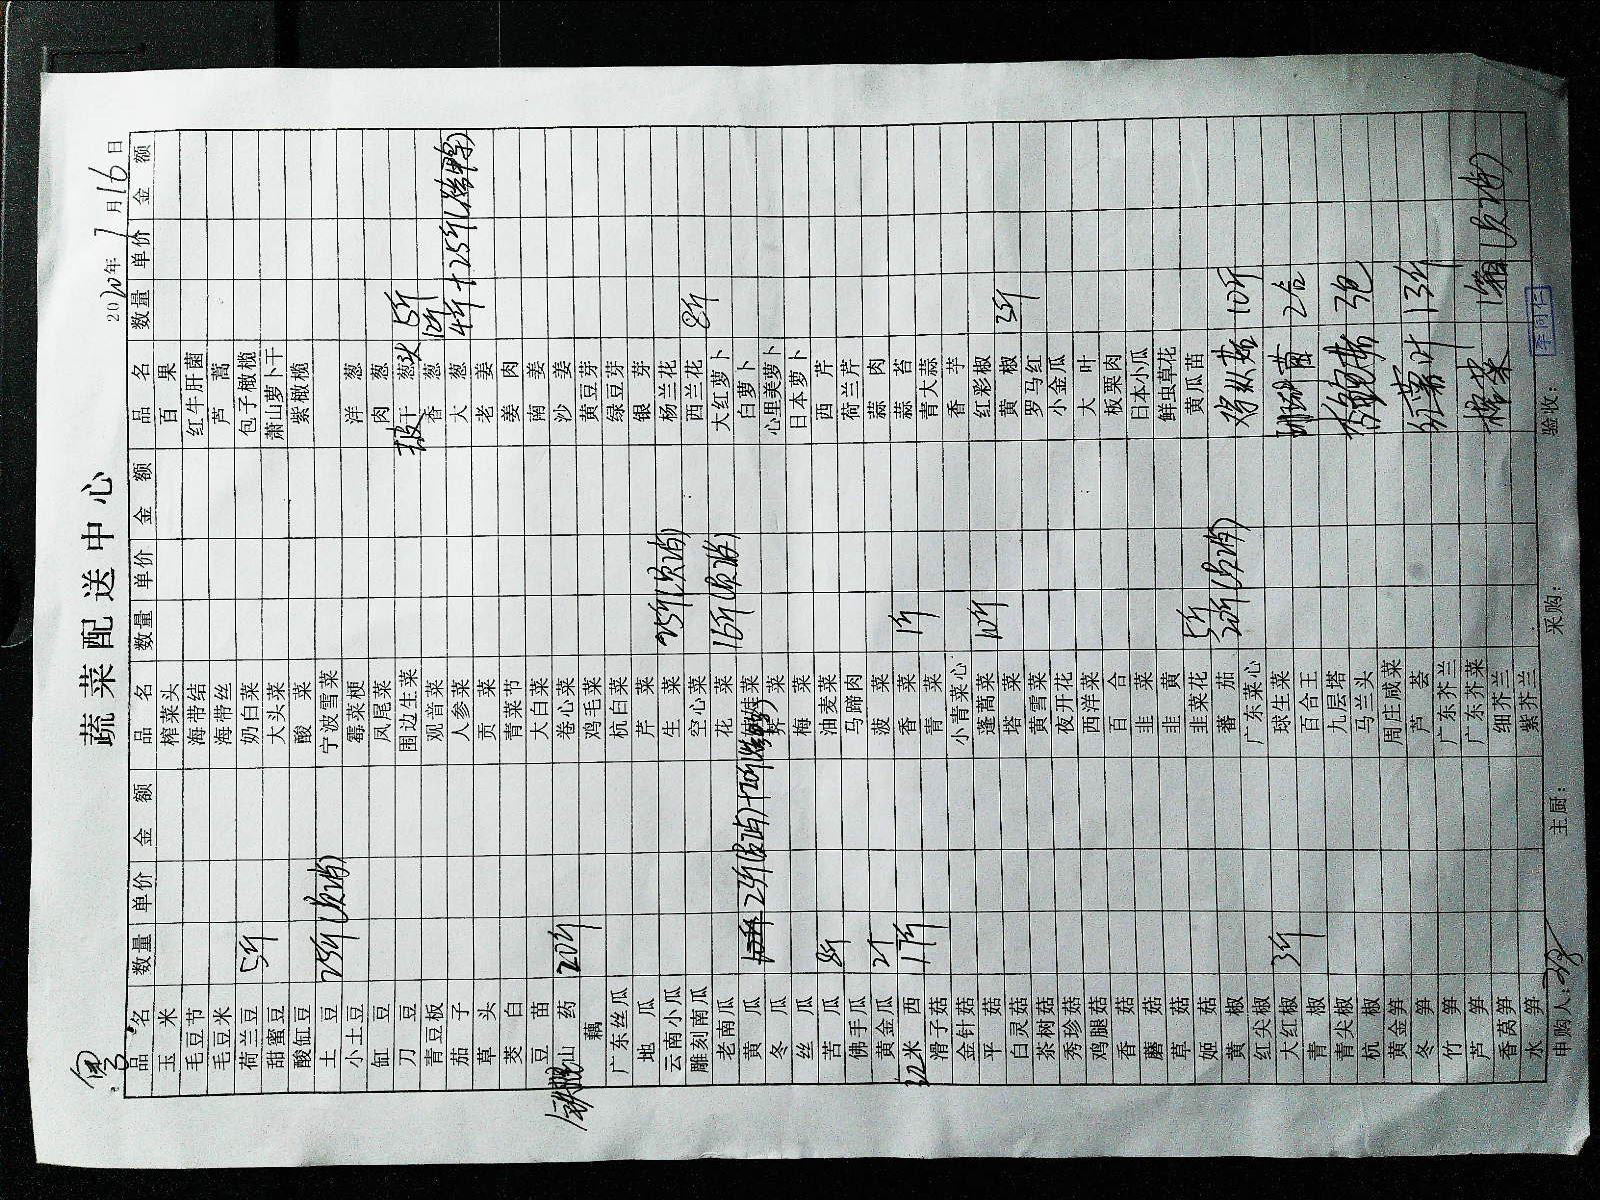 蔬菜配送中心
2020年 7月16日
品名 数量 单价 金额 品名 数量 单价 金额 品名 数量 单价 金额
玉米 榨菜头 百果
毛豆节 海带结 红牛肝菌
毛豆米 海带丝 芦蒿
荷兰豆 5斤 奶白菜 包子橄榄
甜蜜豆 大头菜 萧山萝卜干
酸缸豆 酸菜 紫橄榄
土豆 25斤(员消) 宁波雪菜
小土豆 霉菜梗 洋葱
缸豆 凤尾菜 肉葱
刀豆 围边生菜 干葱头 5斤
青豆板 观音菜 香葱 1斤
茄子 人参菜 大葱 4斤+25斤(烤鸭)
草头 贡菜 老姜
茭白 青菜节 姜肉
豆苗 大白菜 南姜
铁棍山药 20斤 卷心菜 沙姜
藕 鸡毛菜 黄豆芽
广东丝瓜 杭白菜 绿豆芽
地瓜 芹菜 银芽
云南小瓜 生菜 25斤(员消) 杨兰花
雕刻南瓜 空心菜 西兰花 8斤
老南瓜 花菜 16斤(员消) 大红萝卜
黄瓜 25斤(员消)+20斤(烤鸭) 娃娃菜 白萝卜
冬瓜 荠菜 心里美萝卜
丝瓜 梅菜 日本萝卜
苦瓜 8斤 油麦菜 西芹
佛手瓜 马蹄肉 荷兰芹
黄金瓜 2个 菠菜 蒜肉
红米西 1斤 香菜 1斤 蒜苔
滑子菇 青菜 青大蒜
金针菇 小青菜心 香芋
平菇 蓬蒿菜 10斤 红彩椒
白灵菇 塔菜 黄椒 3斤
茶树菇 黄雪菜 罗马红
秀珍菇 夜开花 小金瓜
鸡腿菇 西洋菜 大叶
香菇 百合 板栗肉
蘑菇 韭菜 日本小瓜
草菇 韭黄 鲜虫草花
姬菇 韭菜花 5斤 黄瓜苗
黄椒 蕃茄 20斤(员消) 鸡枞菇 10斤
红尖椒 广东菜心
大红椒 3斤 球生菜 珊瑚菌 2盒
青椒 百合王
青尖椒 九层塔 3包
杭椒 马兰头
黄金笋 周庄咸菜
冬笋 芦荟 红薯叶 13斤
竹笋 广东芥兰
芦笋 广东芥菜 榨菜 1箱(员消)
香莴笋 细芥兰
水笋 紫芥兰
申购人: 主厨: 采购: 验收: